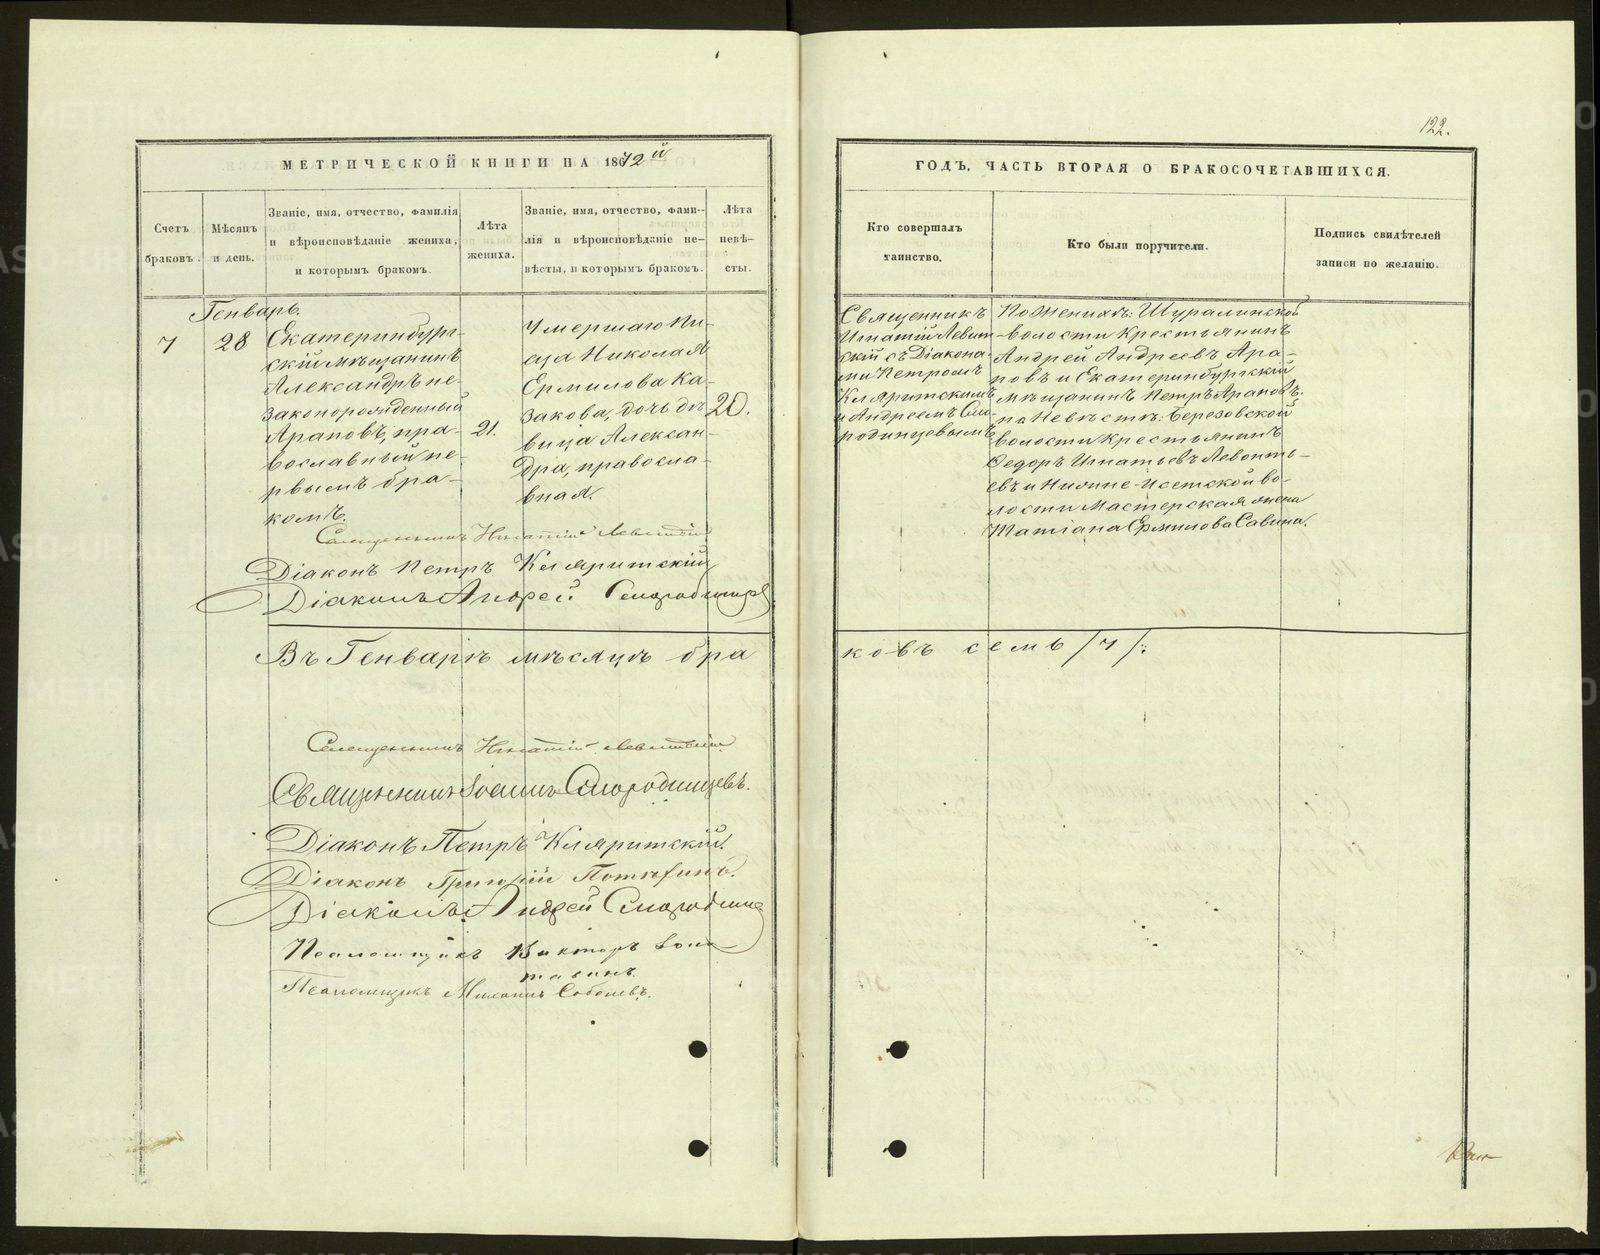 122.
МЕТРИЧЕСКОЙ КНИГИ НА 1872й
ГОДЪ, ЧАСТЬ ВТОРАЯ О БРАКОСОЧЕТАВШИХСЯ.
Счетъ
браковъ.
Мѣсяцъ
и день.
Званіе, имя, отчество, фамилія
и вѣроисповѣданіе жениха,
и которымъ бракомъ.
Лѣта
жениха.
Званіе, имя, отчество, фами-
лія и вѣроисповѣданіе не-
вѣсты, и которымъ бракомъ.
Лѣта
невѣ-
сты.
Кто совершалъ
таинство.
Кто были поручители.
Подпись свидѣтелей
записи по желанію.
Генварь.
7
28
Екатеринбург-
скій мѣщанинъ
Александръ не-
законорожденный
Араповъ, пра-
вославный пе-
рвымъ бра-
комъ.
21.
Умершаго Пи-
сца Николая
Ермилова Ка-
закова, дочь дѣ-
вица Алексан-
дра, правосла-
вная.
20.
Священникъ
Игнатій Левит-
скій съ Діакона-
ми Петромъ
Кляритскимъ
и Андреемъ Смо-
родинцевымъ
По Женихѣ: Шуралинской
волости Крестьянинъ
Андрей Андреевъ Ара-
повъ и Екатеринбургскій
мѣщанинъ Петръ Араповъ.
по Невѣстѣ: Березовской
волости Крестьянинъ
Федоръ Игнатьевъ Левонть-
евъ и Нижне-Исетской во-
лости Мастерская жена
Татіана Ермилова Савина.
Священникъ Игнатій Левитскій
Діаконъ Петръ Кляритскій
Діаконъ Андрей Смородинцев
Въ Генварѣ мѣсяцѣ бра
ковъ семь /7/.
Священникъ Игнатій Левитскій
Священникъ Іоаннъ Смородинцевъ.
Діаконъ Петръ Кляритскій.
Діаконъ Григорій Потѣхинъ.
Діаконъ Андрей Смородинце
Псаломщикъ Викторъ
Псаломщикъ Соболевъ.